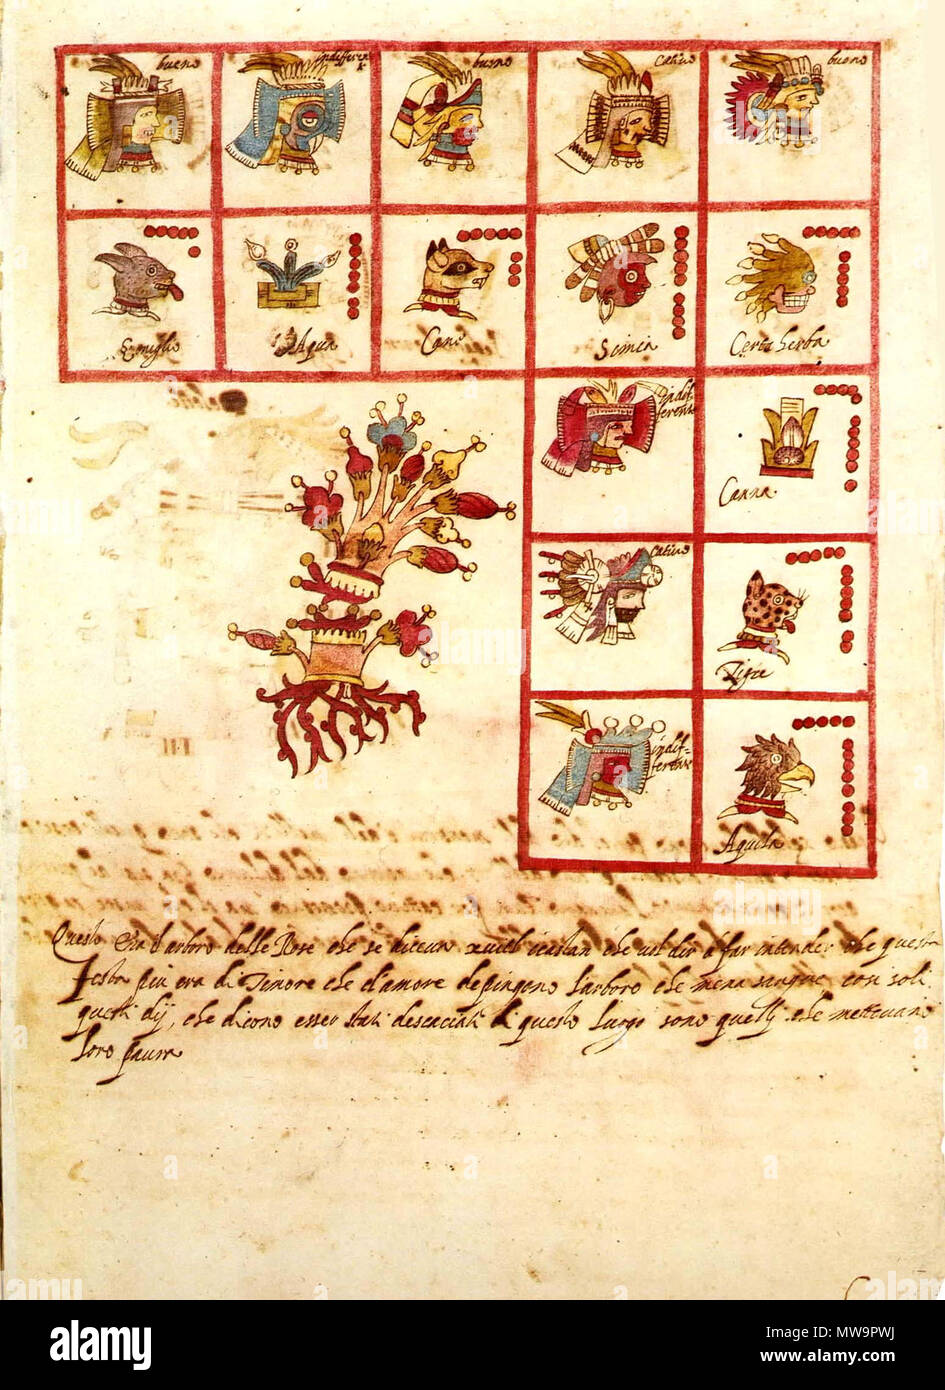 bueno
indifferen
bueno
catiuo
bueno
Coniglio
Agua
Cane
Simia
Certa herba
indif-
ferente
Canna
catiuo
Tigre
indif-
ferente
Aquila
Questo era l'arboro delle Rose che se diceua xuitl icastan che uol dir à far intender che questa
festa piu era di Timore che d'amore depingono l'arboro che mena sangue con soli
questi dij, che dicono esser stati descaciati di questo luogo sono quelli che metteuano
loro paura
alamy
Image ID: MW9PWJ
www.alamy.com